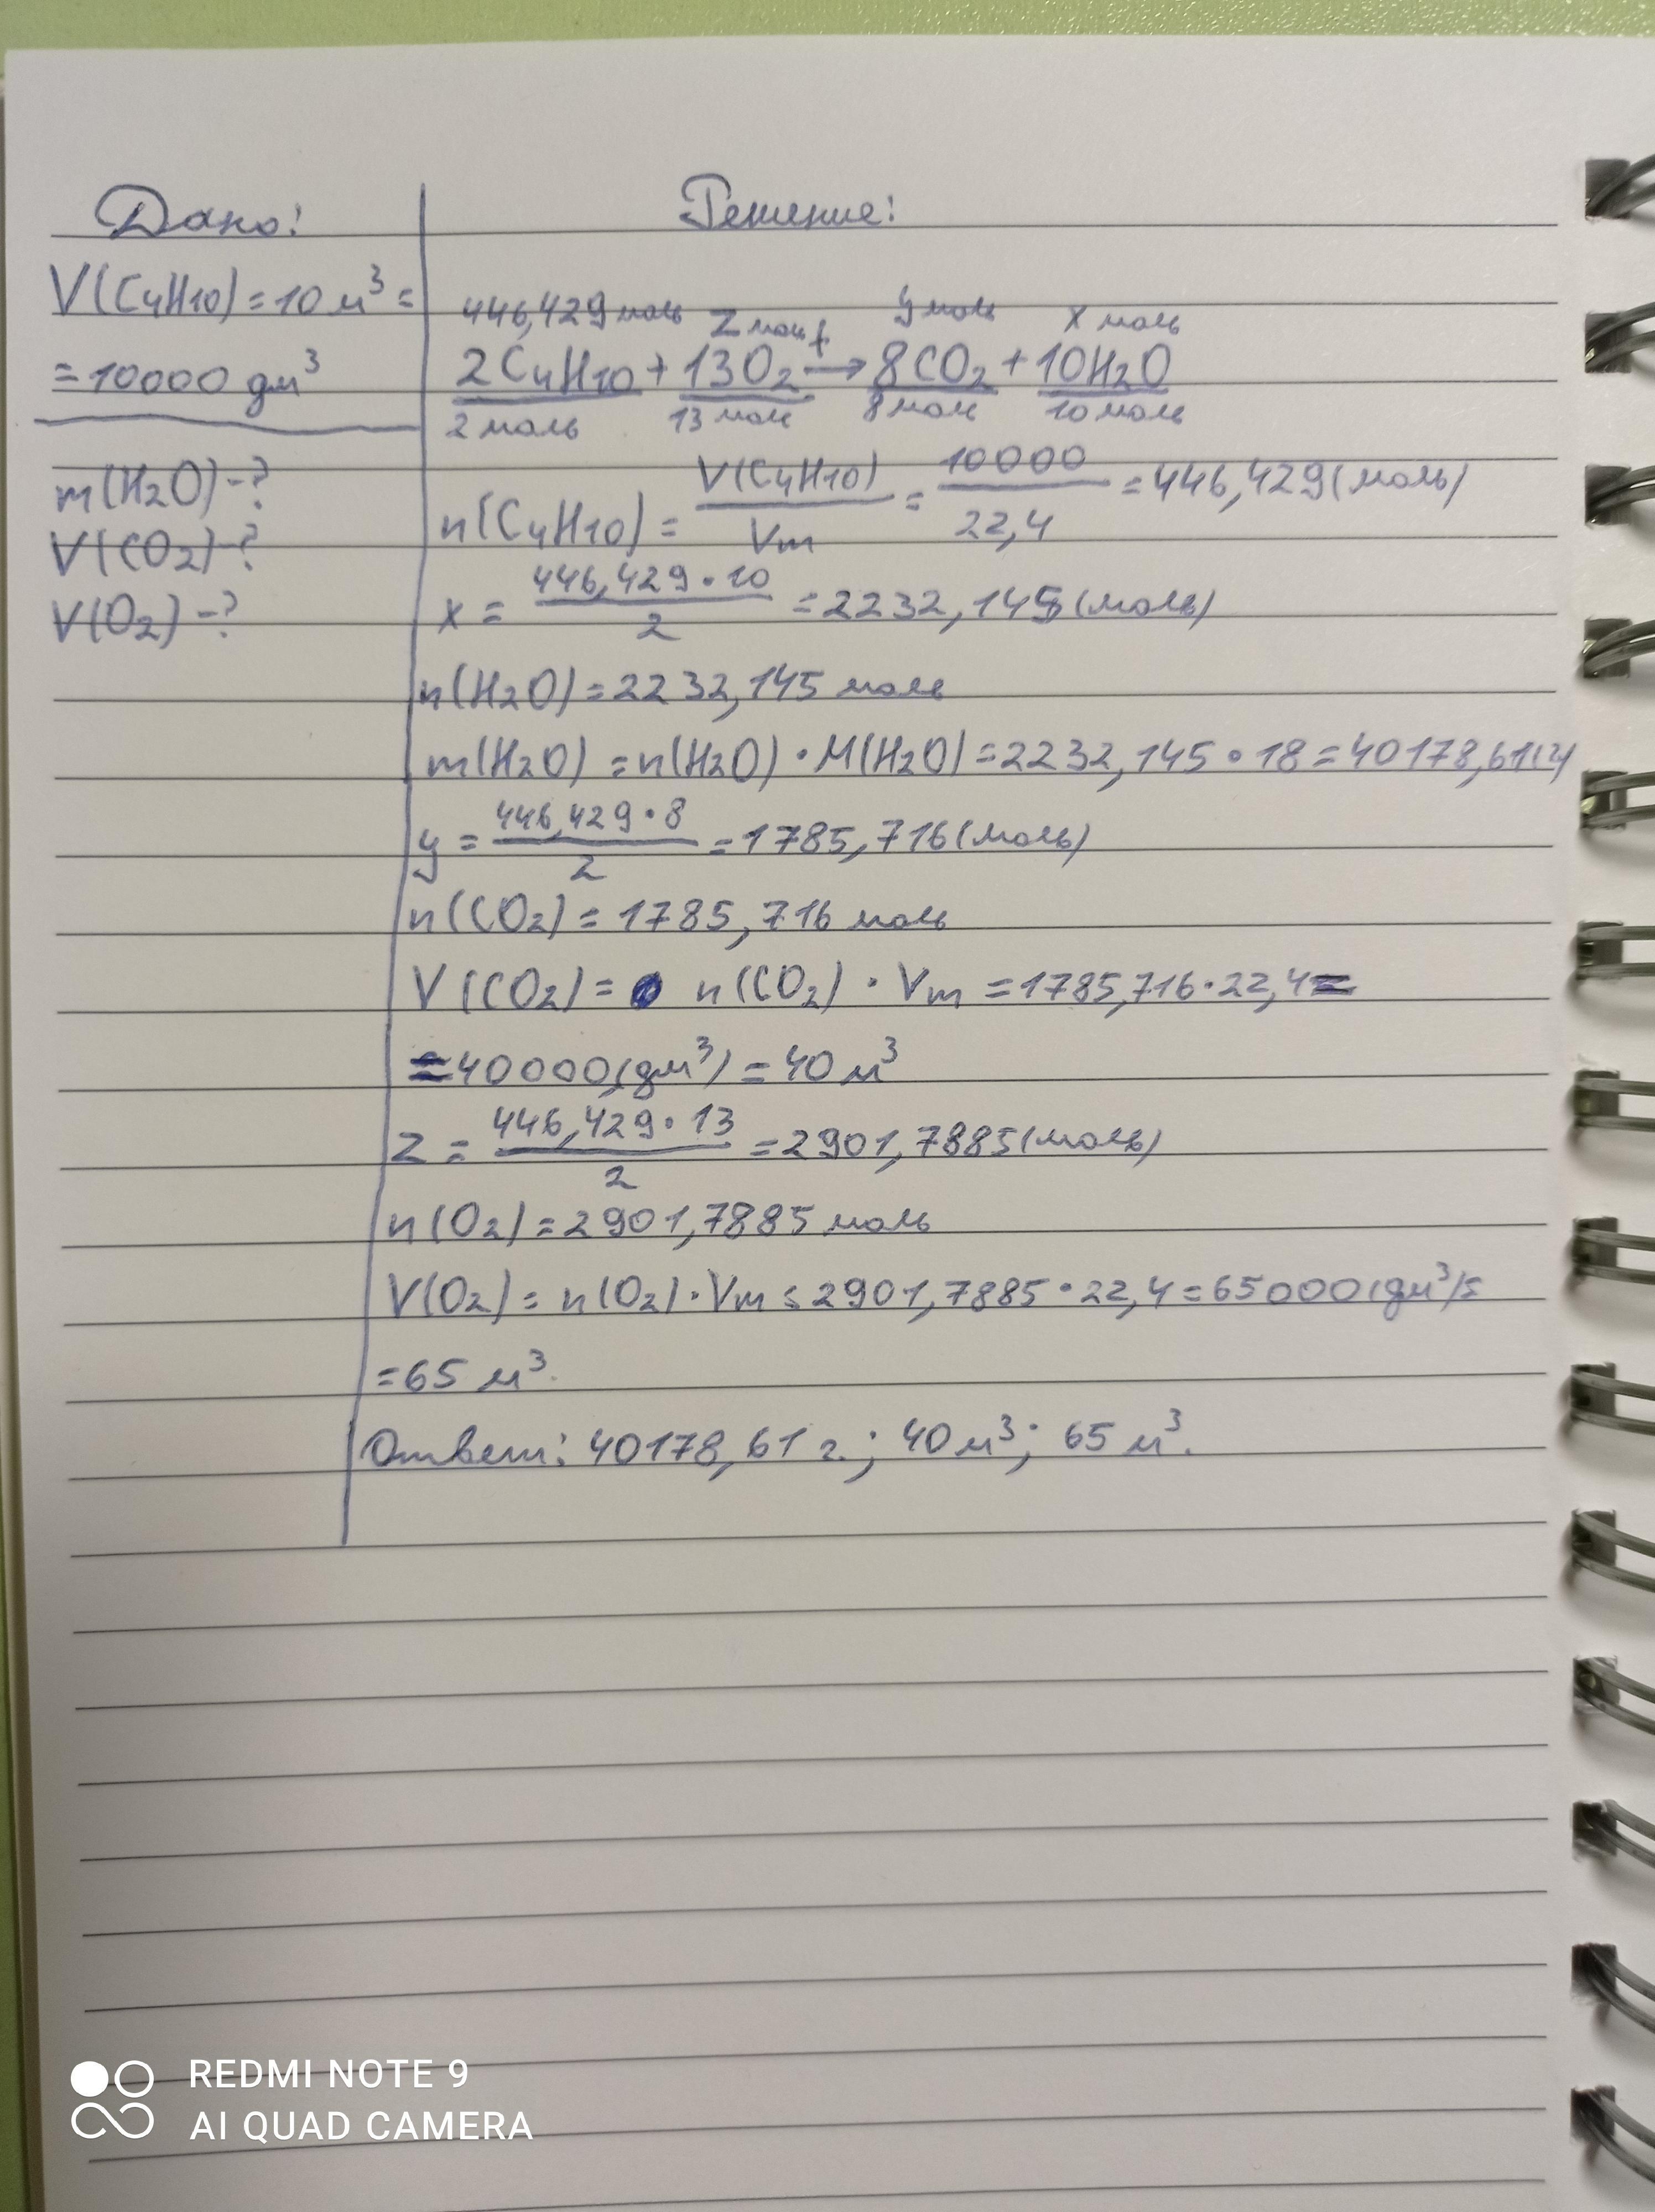 Дано:
V(C4H10) = 10 м³ =
= 10000 дм³
m(H2O) - ?
V(CO2) - ?
V(O2) - ?
Решение:
446,429 моль z моль y моль x моль
2C4H10 + 13O2 →t 8CO2 + 10H2O
2 моль 13 моль 8 моль 10 моль
n(C4H10) = V(C4H10)/Vm = 10000/22,4 = 446,429 (моль)
x = 446,429 · 10/2 = 2232,145 (моль)
n(H2O) = 2232,145 моль
m(H2O) = n(H2O) · M(H2O) = 2232,145 · 18 = 40178,61 (г)
y = 446,429 · 8/2 = 1785,716 (моль)
n(CO2) = 1785,716 моль
V(CO2) = n(CO2) · Vm = 1785,716 · 22,4 =
= 40000 (дм³) = 40 м³
z = 446,429 · 13/2 = 2901,7885 (моль)
n(O2) = 2901,7885 моль
V(O2) = n(O2) · Vm = 2901,7885 · 22,4 = 65000 (дм³) =
= 65 м³.
Ответ: 40178,61 г.; 40 м³; 65 м³.
REDMI NOTE 9
AI QUAD CAMERA